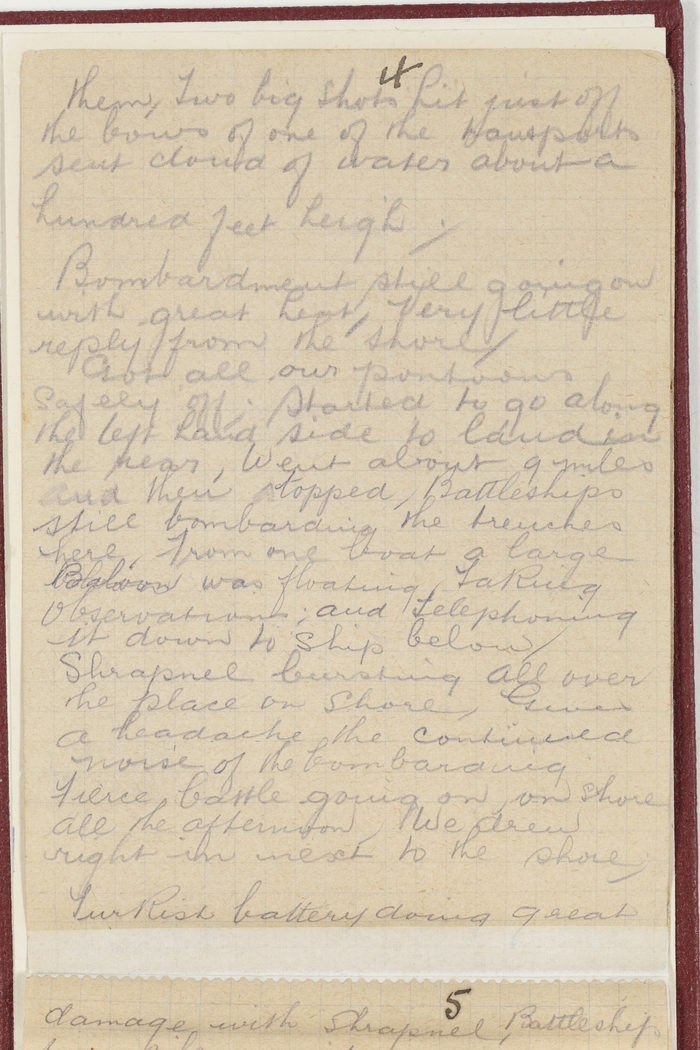 4
them, Two big Shots hit just off
the bows of one of the transports
sent cloud of water about a
hundred feet heigh.
Bombardment still going on
with great heat, Very little
reply from the shore,
Got all our pontoons
Safely off. Started to go along
the left hand side to land in
the rear, Went about 9 miles
and then stopped, Battleships
still bombarding the trenches
here, from one boat a large
Baloon was floating, Taking
Observations, and Telephoning
it down to Ship below,
Shrapnel bursting all over
the place on Shore, Given
a headache the continued
noise of the bombarding
Fierce battle going on, on Shore
all the afternoon, We drew
right in next to the shore,
Turkish battery doing great
5
damage with Shrapnel, Battleship